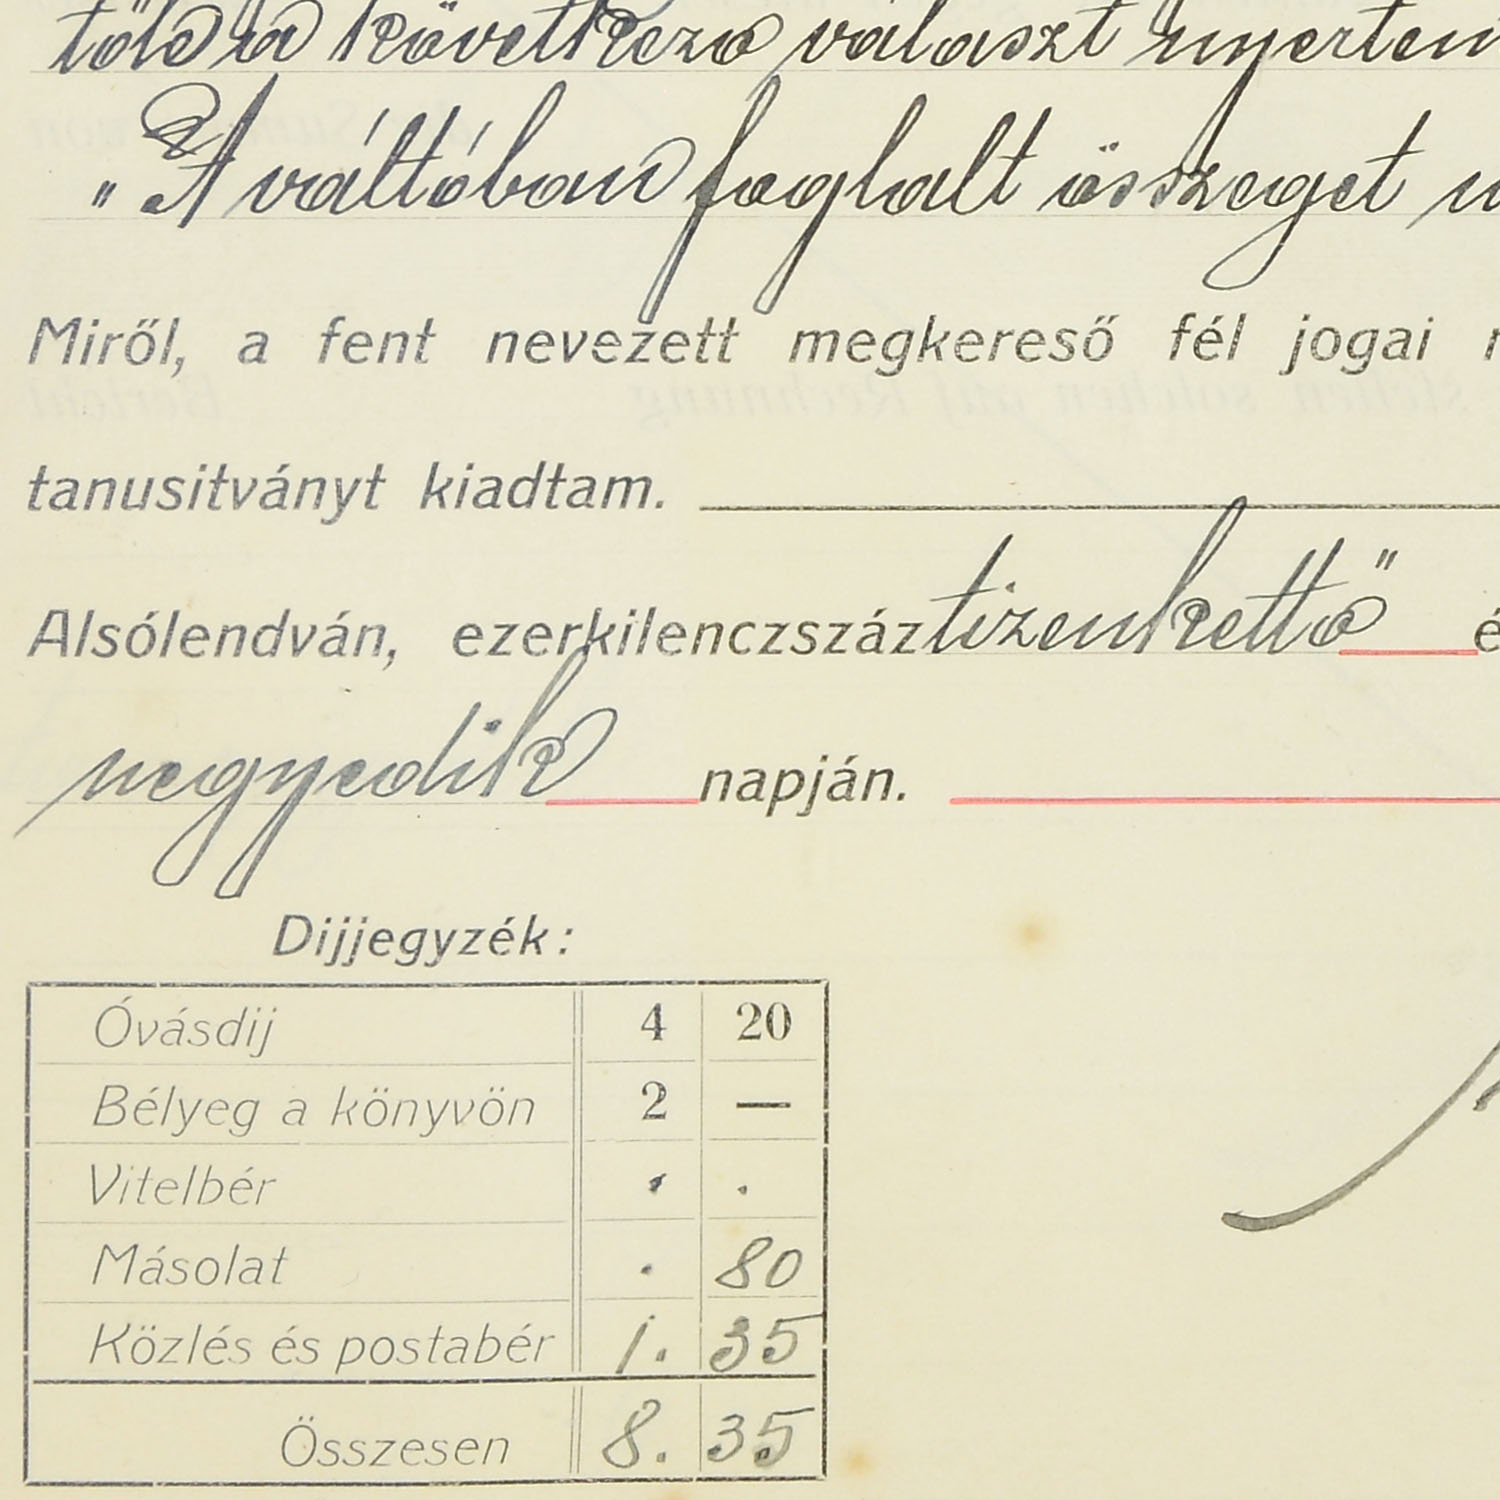 tőle a következő választ nyertem
„A váltóban foglalt összeget
Miről, a fent nevezett megkereső fél jogai
tanusitványt kiadtam.
Alsólendván, ezerkilenczszáztizenkettő
negyedik napján.
Dijjegyzék:
Óvásdij 4 20
Bélyeg a könyvön 2 —
Vitelbér . .
Másolat . 80
Közlés és postabér 1. 35
Összesen 8. 35